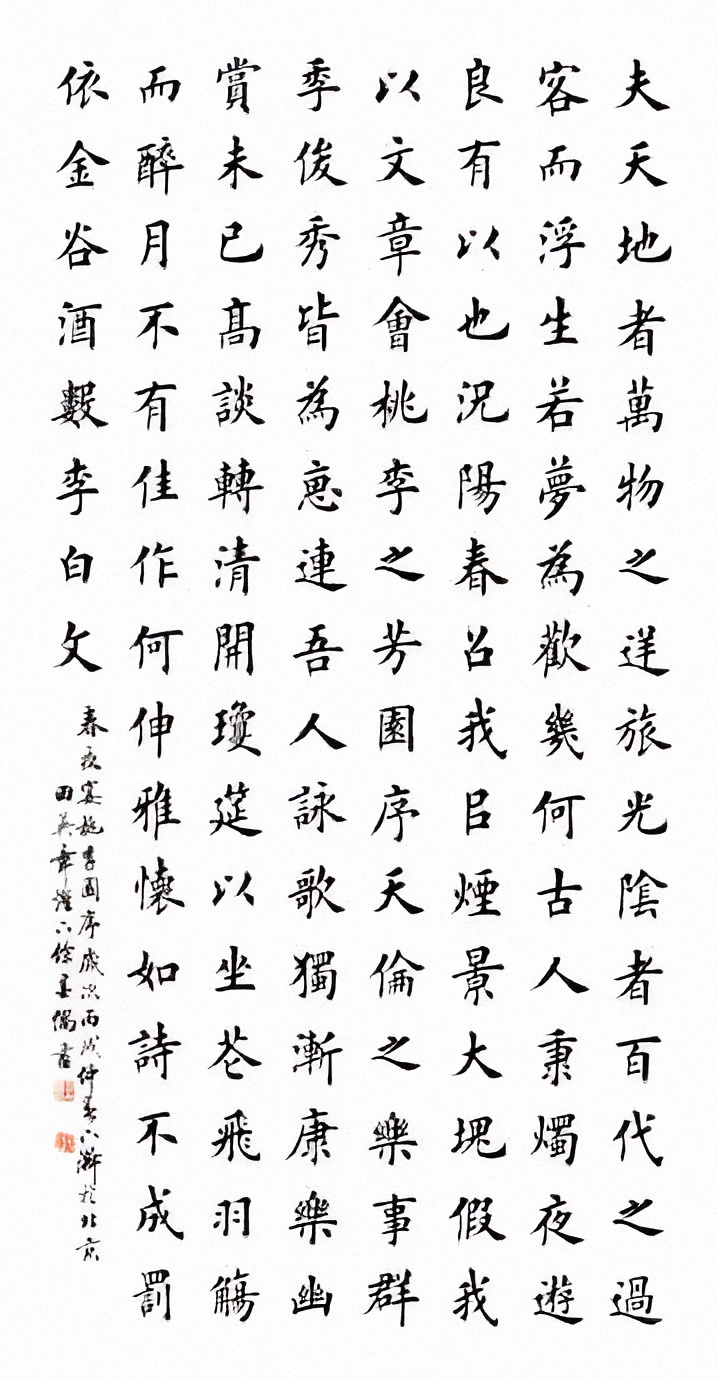 夫天地者萬物之逆旅光陰者百代之過
客而浮生若夢為歡幾何古人秉燭夜遊
良有以也況陽春召我㠯煙景大塊假我
以文章會桃李之芳園序天倫之樂事群
季俊秀皆為惠連吾人詠歌獨漸康樂幽
賞未已髙談轉清開瓊筵以坐花飛羽觴
而醉月不有佳作何伸雅懷如詩不成罰
依金谷酒數李白文
春夜宴桃李園序歲次丙戌仲春下澣於北京
田英章燈下餘墨偶書